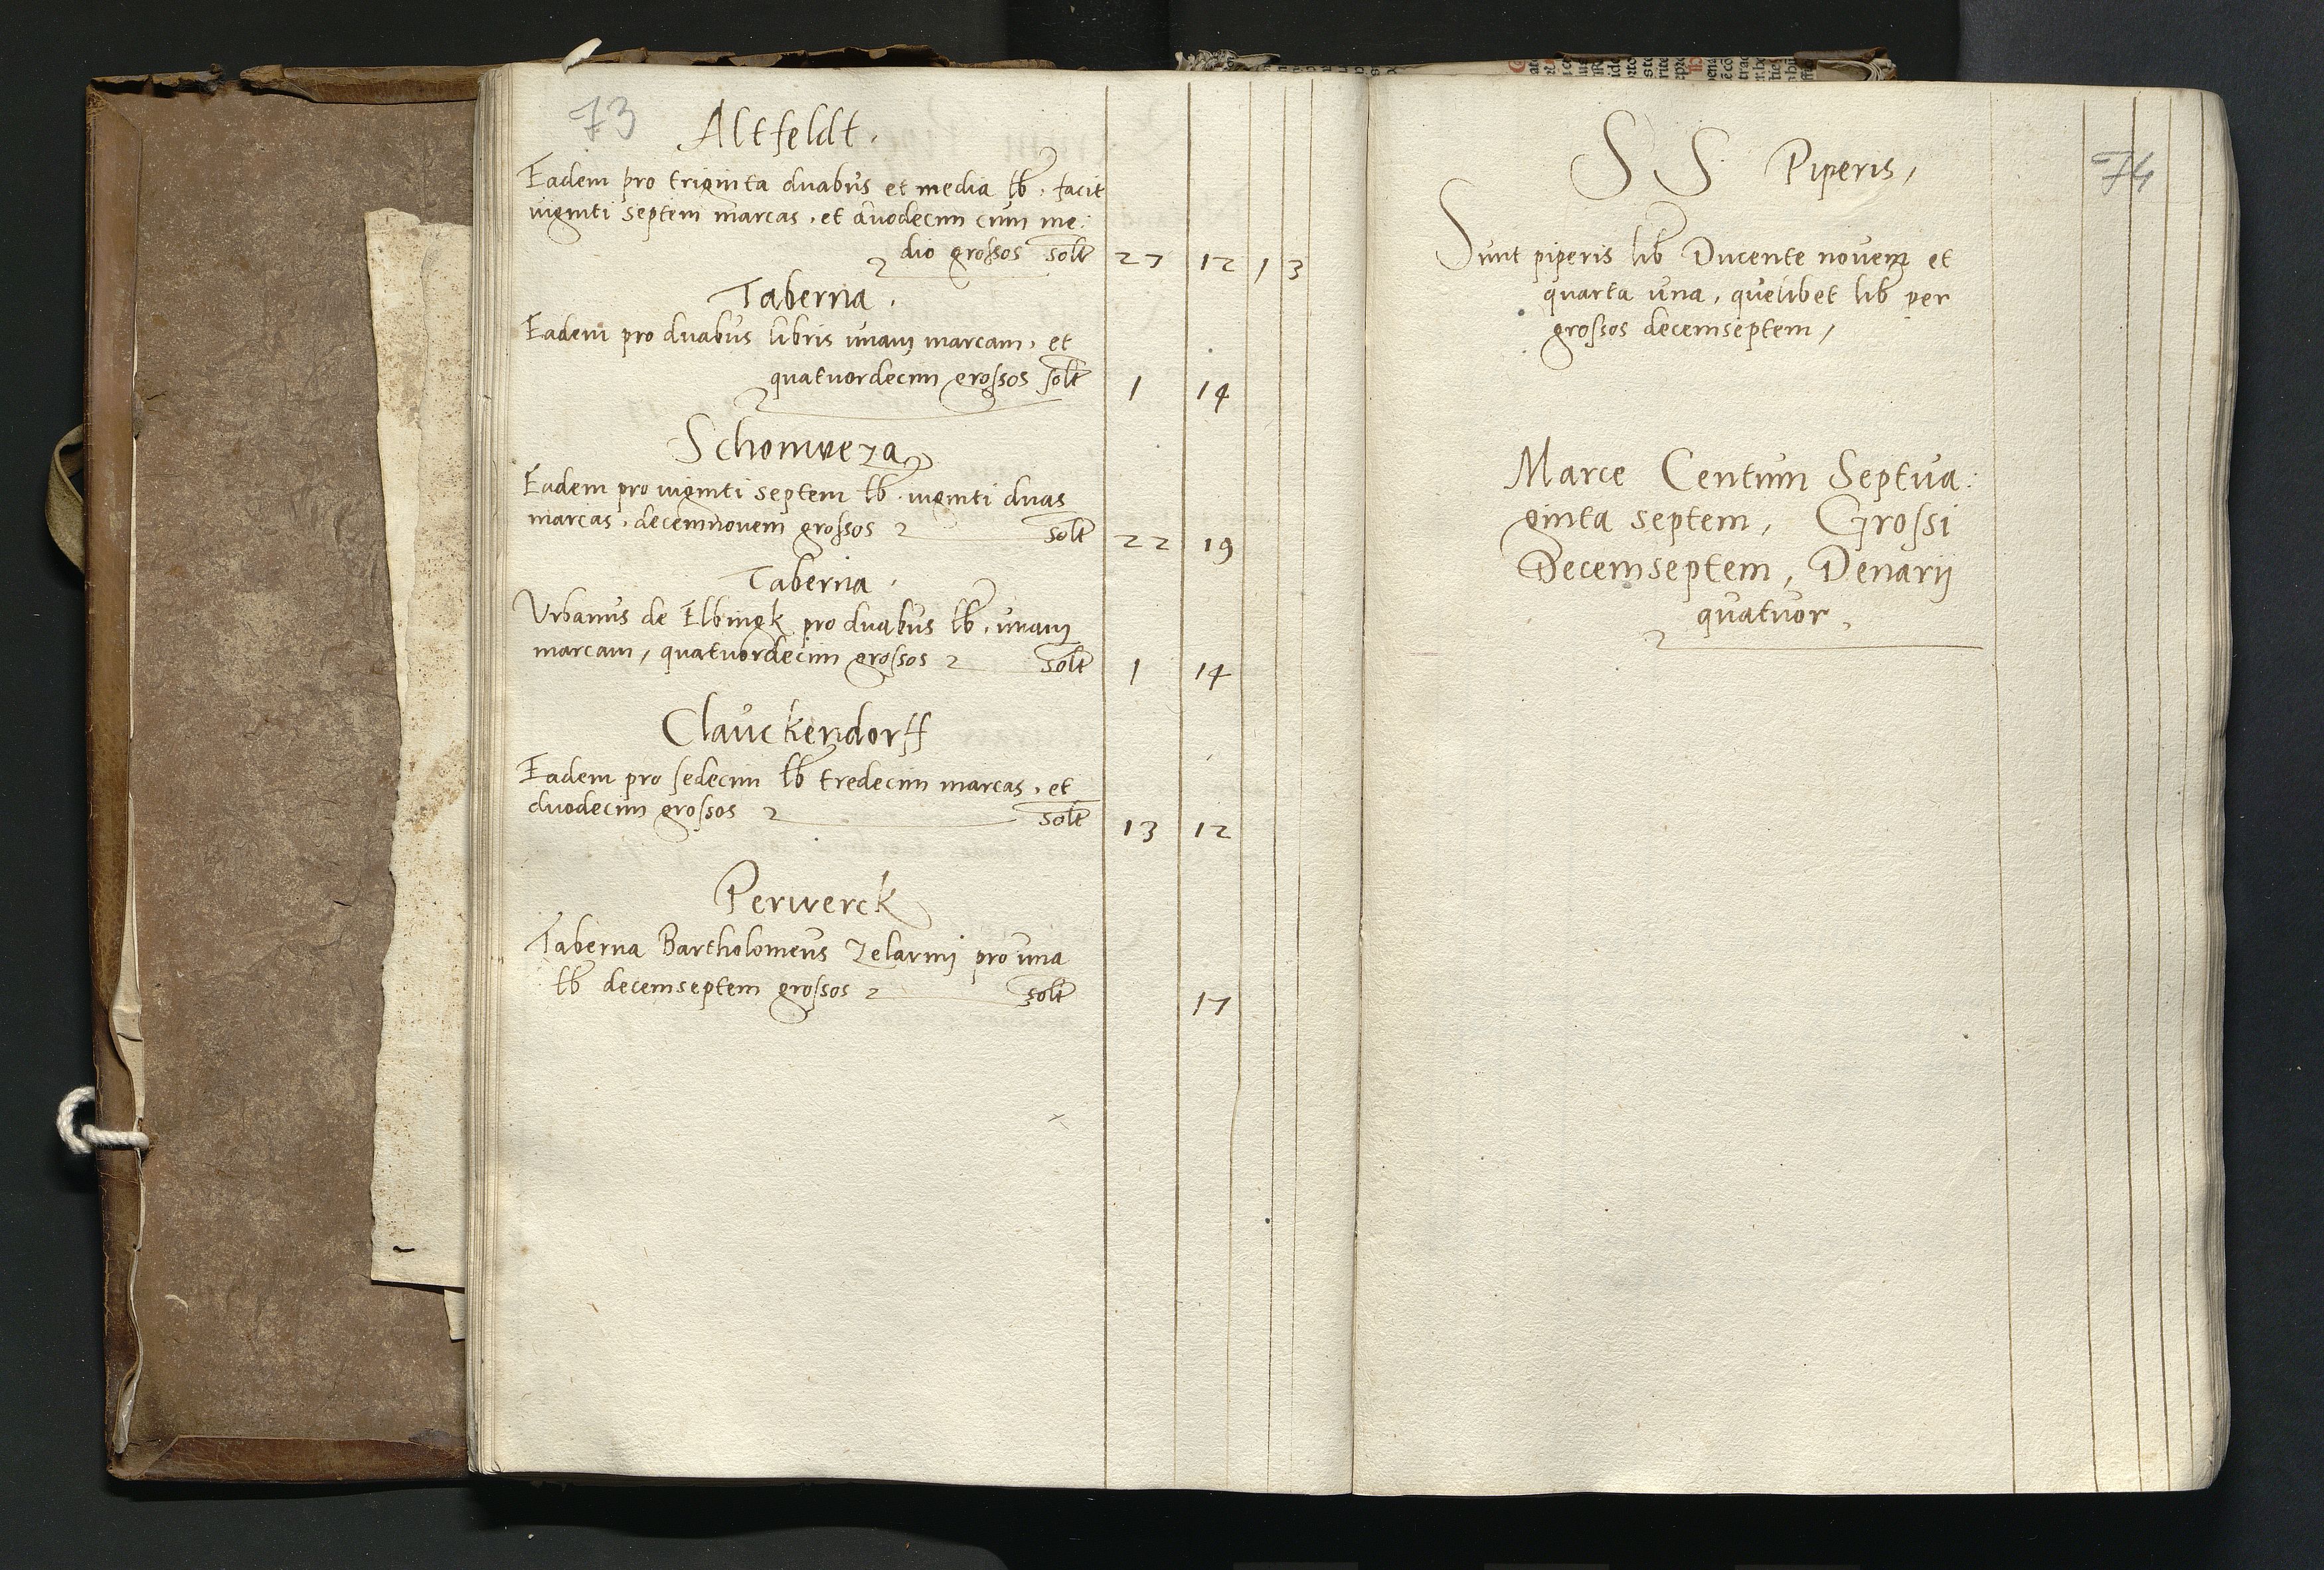 73
Altfeldt.
Eadem pro triginta duabus et media lb. facit
viginti septem marcas, et duodecim cum me:
dio grossos solt 27 12 1 3
Taberna.
Eadem pro duabus libris unam marcam, et
quatuordecim grossos solt 1 14
Schonweza
Eadem pro viginti septem lb. viginti duas
marcas, decemnovem grossos solt 22 19
Taberna.
Urbanus de Elbingk pro duabus lb. unam
marcam, quatuordecim grossos solt 1 14
Clauckendorff
Eadem pro sedecim lb tredecim marcas, et
duodecim grossos solt 13 12
Perwerck
Taberna Bartholomeus pro una
lb decemseptem grossos solt 17
74
S S Piperis,
Sunt piperis lib Ducente novem et
quarta una, quelibet lib per
grossos decemseptem,
Marce Centum Septua:
ginta septem, Grossi
Decemseptem, Denarij
quatuor,